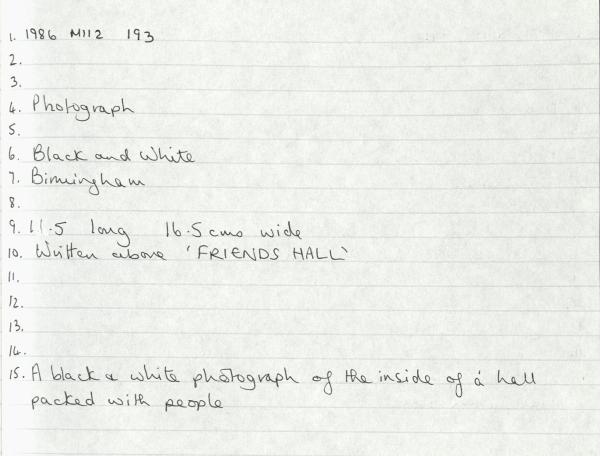 1. 1986 M112 193
2.
3.
4. Photograph
5.
6. Black and White
7. Birmingham
8.
9. 11.5 long 16.5cms wide
10. Written above 'FRIENDS HALL'
11.
12.
13.
14.
15. A black & white photograph of the inside of a hall
packed with people